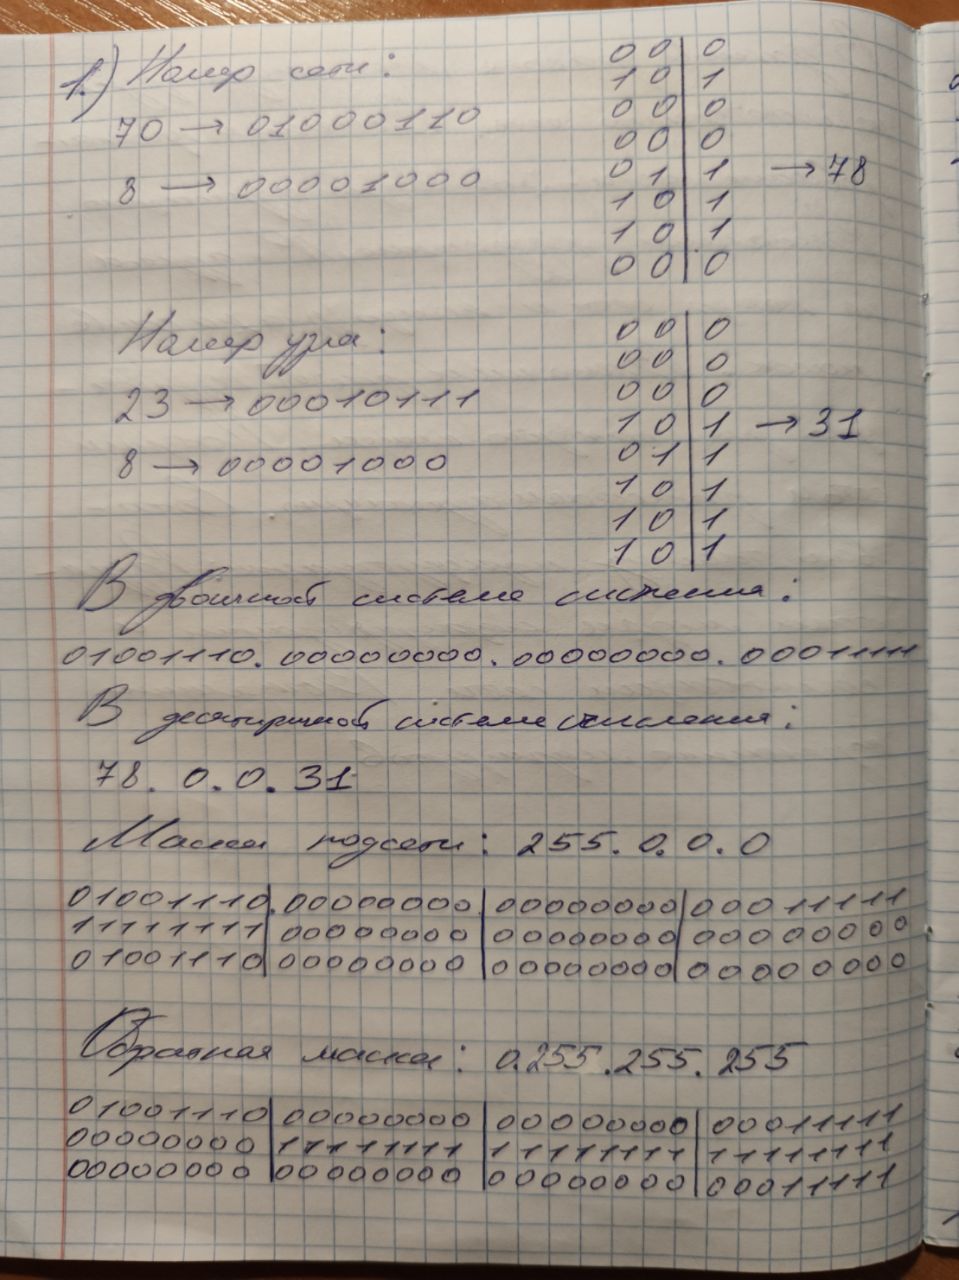 1.) Номер сети:
70 → 01000110
8 → 00001000
0 0 | 0
1 0 | 1
0 0 | 0
0 0 | 0
0 1 | 1 → 78
1 0 | 1
1 0 | 1
0 0 | 0
Номер узла:
23 → 00010111
8 → 00001000
0 0 | 0
0 0 | 0
0 0 | 0
1 0 | 1 → 31
0 1 | 1
1 0 | 1
1 0 | 1
1 0 | 1
В двоичной системе счисления:
01001110. 00000000. 00000000. 00011111
В десятиричной системе счисления:
78. 0. 0. 31
Маска подсети: 255. 0. 0. 0
01001110 | 00000000 | 00000000 | 00011111
11111111 | 00000000 | 00000000 | 00000000
01001110 | 00000000 | 00000000 | 00000000
Обратная маска: 0.255.255.255
01001110 | 00000000 | 00000000 | 00011111
00000000 | 11111111 | 11111111 | 11111111
00000000 | 00000000 | 00000000 | 00011111